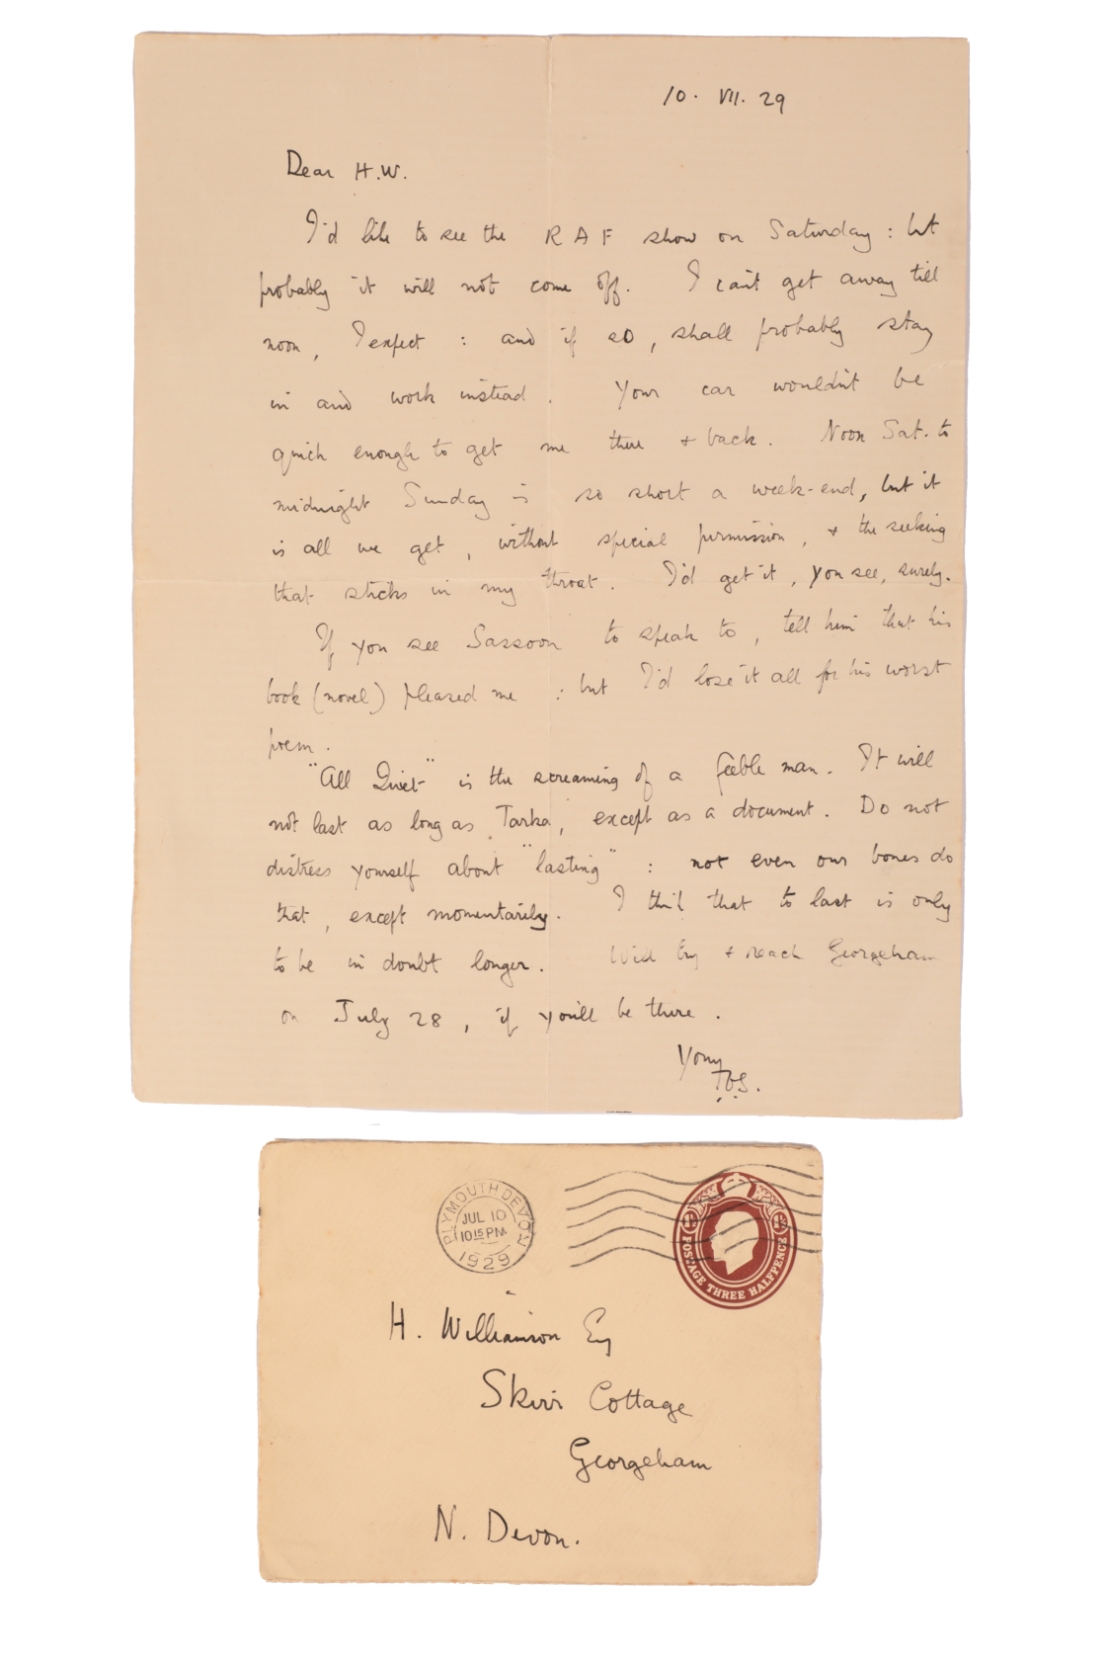 10. VII. 29
Dear H.W.
I'd like to see the RAF show on Saturday: but
probably it will not come off. I can't get away till
noon, I expect: and if so, shall probably stay
in and work instead. Your car wouldn't be
quick enough to get me there + back. Noon Sat. to
midnight Sunday is so short a week-end, but it
is all we get, without special permission, + the seeking
that sticks in my throat. I'd get it, you see, surely.
If you see Sassoon to speak to, tell him that his
book (novel) pleased me: but I'd lose it all for his worst
poem.
"All Quiet" is the screaming of a feeble man. It will
not last as long as Tarka, except as a document. Do not
distress yourself about "lasting": not even our bones do
that, except momentarily. I think that to last is only
to be in doubt longer. Will try + reach Georgeham
on July 28, if you'll be there.
Yours
TES.
PLYMOUTH DEVON
JUL 10
10 15 PM
1929
POSTAGE THREE HALFPENCE
H. Williamson Esq
Skirr Cottage
Georgeham
N. Devon.